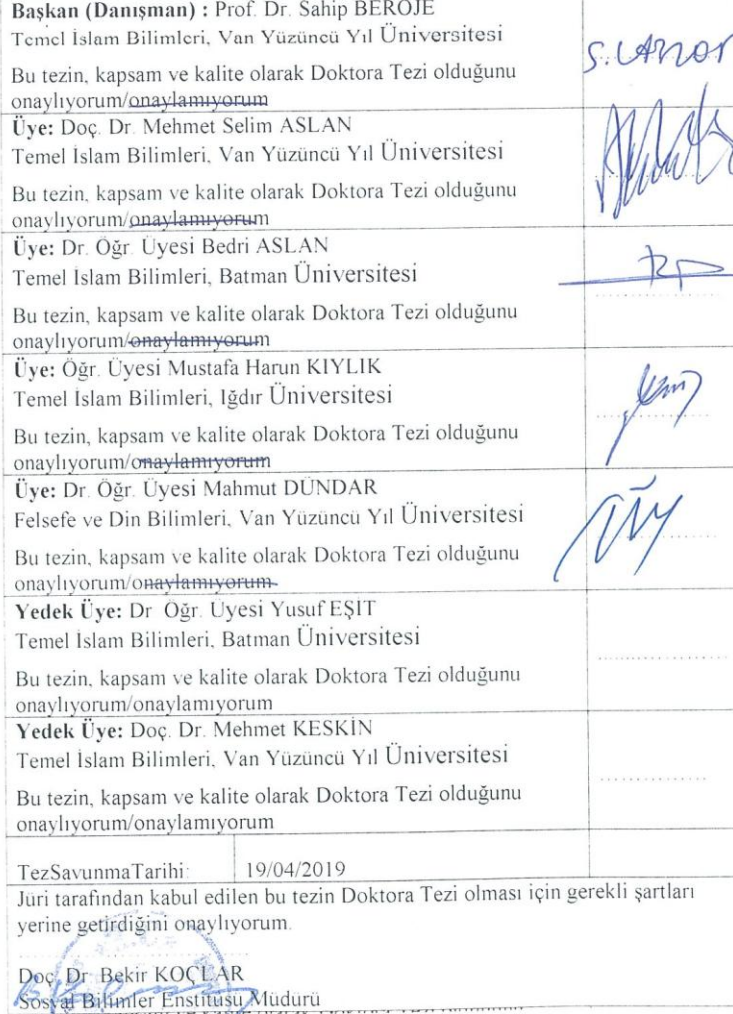 Başkan (Danışman) : Prof. Dr. Sahip BEROJE
Temel İslam Bilimleri, Van Yüzüncü Yıl Üniversitesi
Bu tezin, kapsam ve kalite olarak Doktora Tezi olduğunu
onaylıyorum/onaylamıyorum
Üye: Doç. Dr. Mehmet Selim ASLAN
Temel İslam Bilimleri, Van Yüzüncü Yıl Üniversitesi
Bu tezin, kapsam ve kalite olarak Doktora Tezi olduğunu
onaylıyorum/onaylamıyorum
Üye: Dr. Öğr. Üyesi Bedri ASLAN
Temel İslam Bilimleri, Batman Üniversitesi
Bu tezin, kapsam ve kalite olarak Doktora Tezi olduğunu
onaylıyorum/onaylamıyorum
Üye: Öğr. Üyesi Mustafa Harun KIYLIK
Temel İslam Bilimleri, Iğdır Üniversitesi
Bu tezin, kapsam ve kalite olarak Doktora Tezi olduğunu
onaylıyorum/onaylamıyorum
Üye: Dr. Öğr. Üyesi Mahmut DÜNDAR
Felsefe ve Din Bilimleri, Van Yüzüncü Yıl Üniversitesi
Bu tezin, kapsam ve kalite olarak Doktora Tezi olduğunu
onaylıyorum/onaylamıyorum
Yedek Üye: Dr Öğr. Üyesi Yusuf EŞİT
Temel İslam Bilimleri, Batman Üniversitesi
Bu tezin, kapsam ve kalite olarak Doktora Tezi olduğunu
onaylıyorum/onaylamıyorum
Yedek Üye: Doç. Dr. Mehmet KESKİN
Temel İslam Bilimleri, Van Yüzüncü Yıl Üniversitesi
Bu tezin, kapsam ve kalite olarak Doktora Tezi olduğunu
onaylıyorum/onaylamıyorum
TezSavunmaTarihi: 19/04/2019
Jüri tarafından kabul edilen bu tezin Doktora Tezi olması için gerekli şartları
yerine getirdiğini onaylıyorum.
Doç. Dr. Bekir KOÇLAR
Sosyal Bilimler Enstitüsü Müdürü